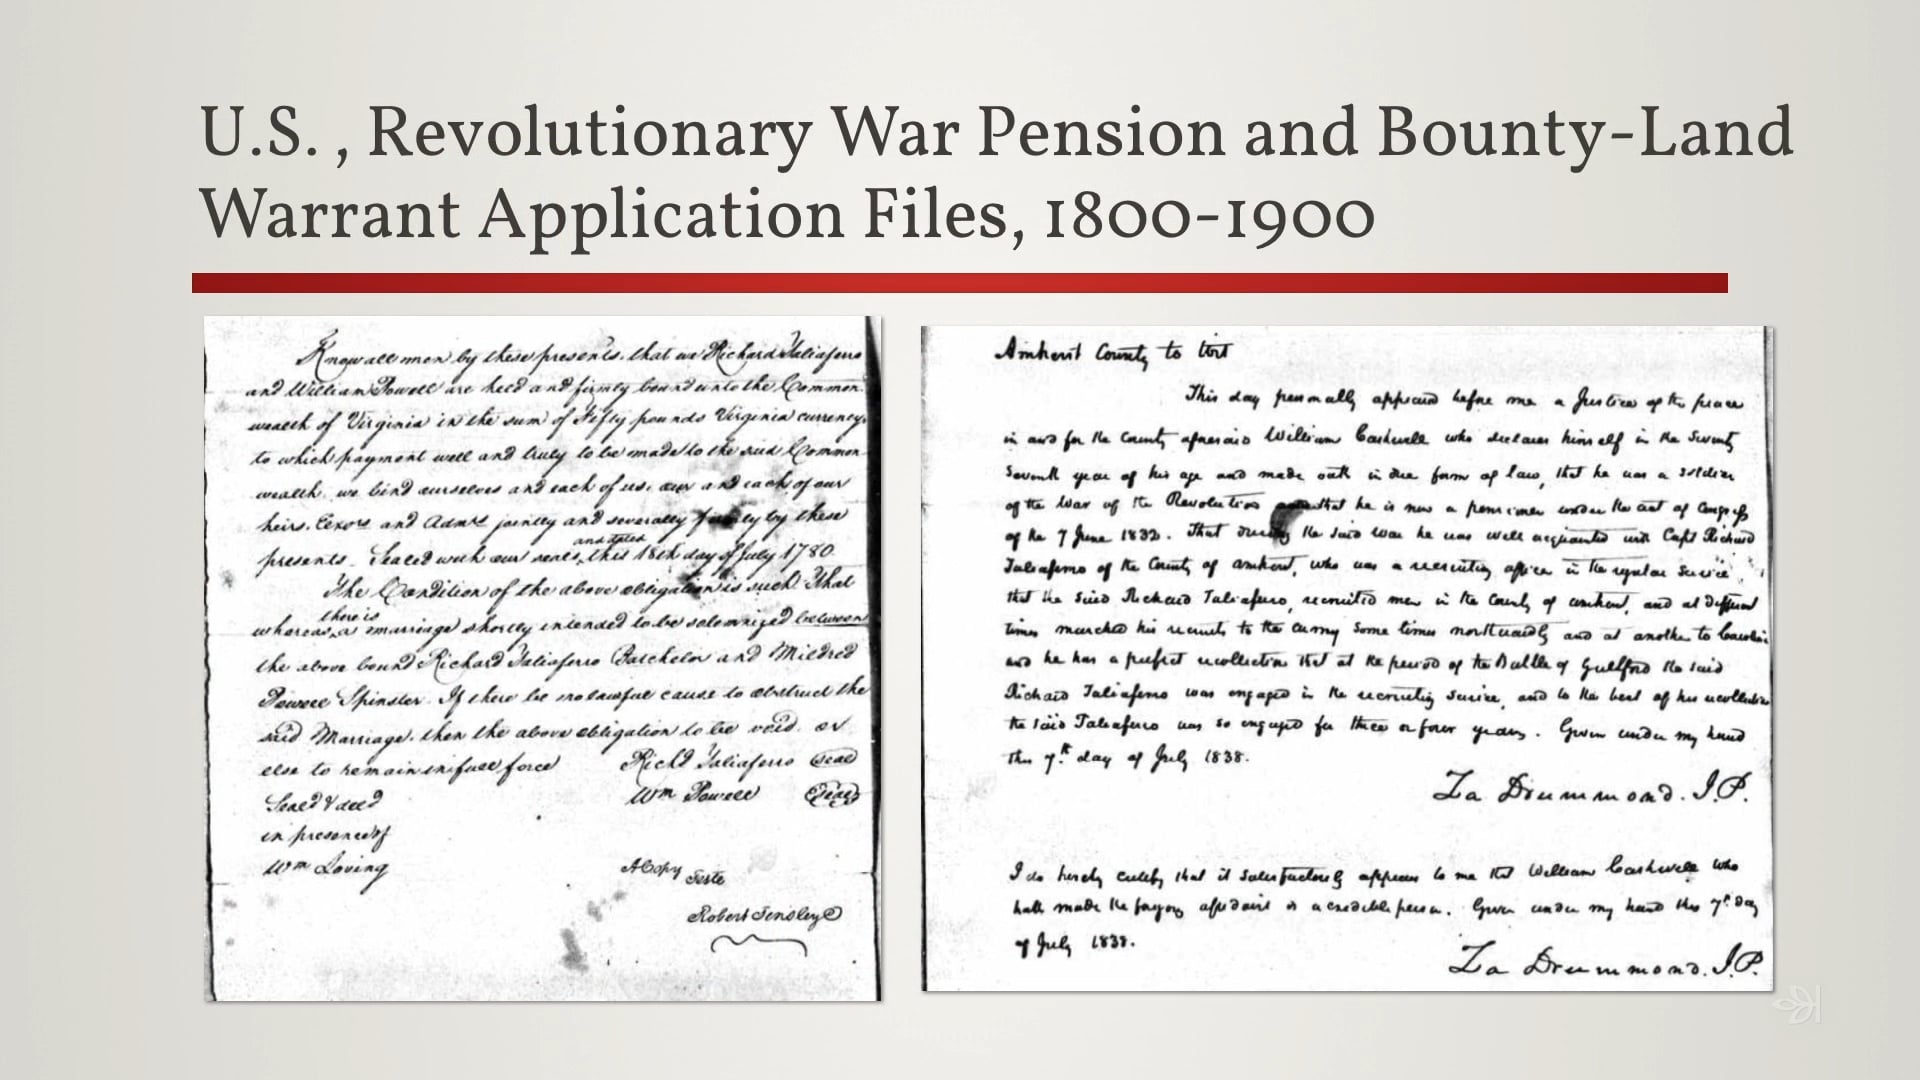 U.S. , Revolutionary War Pension and Bounty-Land
Warrant Application Files, 1800-1900
Know all men by these presents, that we Richard Taliaferro
and William Powell are held and firmly bound unto the Common
wealth of Virginia in the sum of Fifty pounds Virginia currency,
to which payment well and truly to be made to the said Common
wealth, we bind ourselves and each of us, our and each of our
heirs, Exors and Admrs jointly and severally firmly by these
and dated
presents. Sealed with our seals, this 18th day of July 1780.
The Condition of the above obligation is such That
there is
whereas, a marriage shortly intended to be solemnized between
the above bound Richard Taliaferro Batchelor and Mildred
Powell Spinster. If there be no lawful cause to obstruct the
said Marriage, then the above obligation to be void. or
else to remain in full force Richd Taliaferro Seal
Seald & deld Wm Powell Seal
in presence of
Wm Loving A Copy
Teste
Robert Tinsley
Amherst County to wit
This day personally appeared before me a Justice of the peace
in and for the County aforesaid William Cashwell who declares himself in the Seventy
Seventh year of his age and made oath in due form of law, that he was a soldier
of the War of the Revolution that he is now a pensioner under the act of Congress
of the 7 June 1832. That during the said war he was well acquainted with Capt Richard
Taliaferro of the County of Amherst, who was a recruiting officer in the regular service
that the said Richard Taliaferro, recruited men in the County of Amherst, and at different
times marched his recruits to the army some times northwardly and at another to Carolina
and he has a perfect recollection that at the period of the Battle of Guilford the said
Richard Taliaferro was engaged in the recruiting service, and to the best of his recollection
the said Taliaferro was so engaged for three or four years. Given under my hand
this 7th day of July 1838.
Za Drummond. J.P.
I do hereby certify that it satisfactorily appears to me that William Cashwell who
hath made the foregoing affidavit is a credible person. Given under my hand this 7th day
of July 1838.
Za Drummond. J.P.